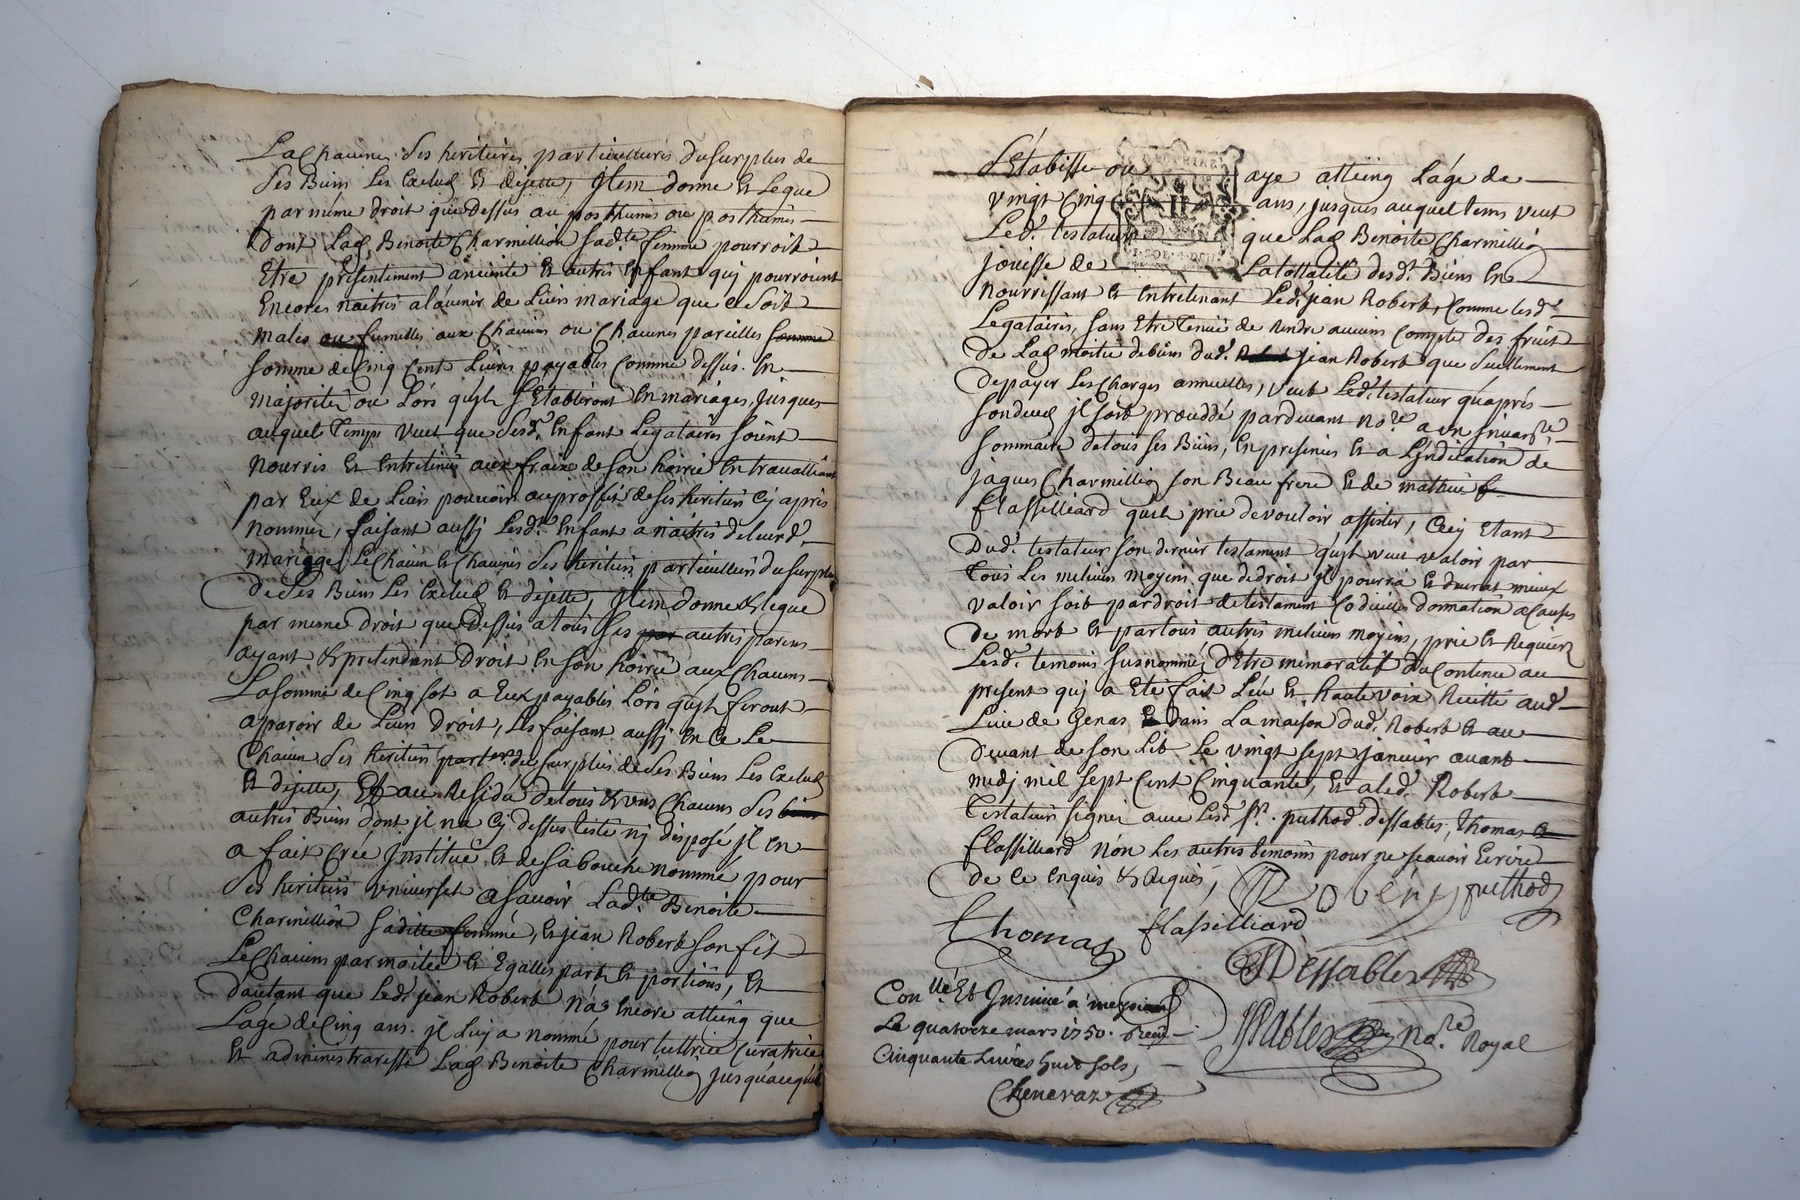 La Chacune ses heritieres particullieres du surplus de
ses Biens les Exclud et dejette, Jtem donne et legue
par meme droit que dessus au posthumes ou posthumes
dont Lad. Benoite Charmillion sad.te femme pourroit
Etre presentement anceinte et autres Enfant quj pourroient
Encores naitres alavenir de Leurs mariage que ce soit
males ou fumelles aux Chacuns ou Chacunes pareilles somme
somme de Cinq Cent Livres payables Comme dessus. En
majorité ou Lors qu'jls s'Etabliront En mariages, jusques
auquel temps veut que sesd. Enfant Legataires soient
nourris et Entretenus aux fraix de son hoirie En travaillant
par Eux de Leurs pouvoirs au proffit de ses heritiers Cy apres
nommés, faisant aussj Lesd. Enfant a naitres de leurd.
mariage Le Chacun et Chacunes ses heritiers particulliers du surplus
de ses Biens Les Exclud et dejette, Jtem donne & legue
par meme droit que Dessus a tous ses autres parens
ayant & pretendant Droit En son hoirie aux Chacuns
La somme de Cinq sol a Eux payables Lors qu'jls feront
aparoir de Leurs Droit, Les faisant aussj En Ce Le
Chacun ses heritiers part.ers du surplus de ses Biens Les Exclud
Et dejette, Et au Residu de tous & uns Chacuns ses biens
autres Biens dont jl n'a Cy dessus testé nj disposé jl en
a fait Cree Jnstitué et de sa bouche nommé pour
ses heritiers universel a sçavoir Lad.te Benoite
Charmillion sadite femme, et jean Robert son fils
Le Chacuns par moitié et Egalles part et portions, Et
d'autant que Led. jean Robert n'a Encore atteing que
Lage de Cinq ans. jl luy a nommé pour tuttrice Curatrice
Et administraresse Lad. Benoite Charmillion jusqu'acequil
s'Etablisse ou aye atteing L'age de
vingt Cinq ans, jusques auquel tems veut
Led. testateur que Lad. Benoite Charmillion
jouisse de La tottalité desd. Biens En
nourrissant et Entretenant Led. jean Robert, Comme lesd.
Legataires, sans Etre tenue de Rendre aucuns Compte des fruit
de Lad. moitié de biens dud. jean Robert que seullement
de payer Les Charges annuelles, veut Led. testateur qu'apres
son deced jl soit proceddé pardevant No.re a un jnvan.re
sommaire de tous ses Biens, En presences et a L'jndication de
jaques Charmillion son Beau frere et de mathieu
flassilliard qu'il prie de vouloir assister, Cecy Etant
Dud. testateur son dernier testament qu'jl veut valoir par
tous Les meilieurs moyens que de droit jl pourra et devrat mieux
valoir soit par droit de testament Codicilles donnation a Causes
de mort et par tous autres meilieurs moyens, prie et Requiere
Lesd. temoins susnommés d'Etre memoratif du Contenu au
present quj a Eté fait Leu et haute voix Recitté aud.
Lieu de Genas dans La maison dud. Robert et au
devant de son Lit Le vingt sept janvier avant
midj mil sept Cent Cinquante, Et a led. Robert
Testateur signé avec Lesd. Sr. puthod. dessables, thomas et
flassilliard non Les autres temoins pour ne sçavoir Ecrire
de Ce Enquis & Requis,
Robert puthod
Thomas flassilliard
Dessables
Con.llé Et Jnsinué a meyzieu
Le quatorze mars 1750. Recu
Cinquante Livres huit sols,
Cheneraz
Sables No.re Royal